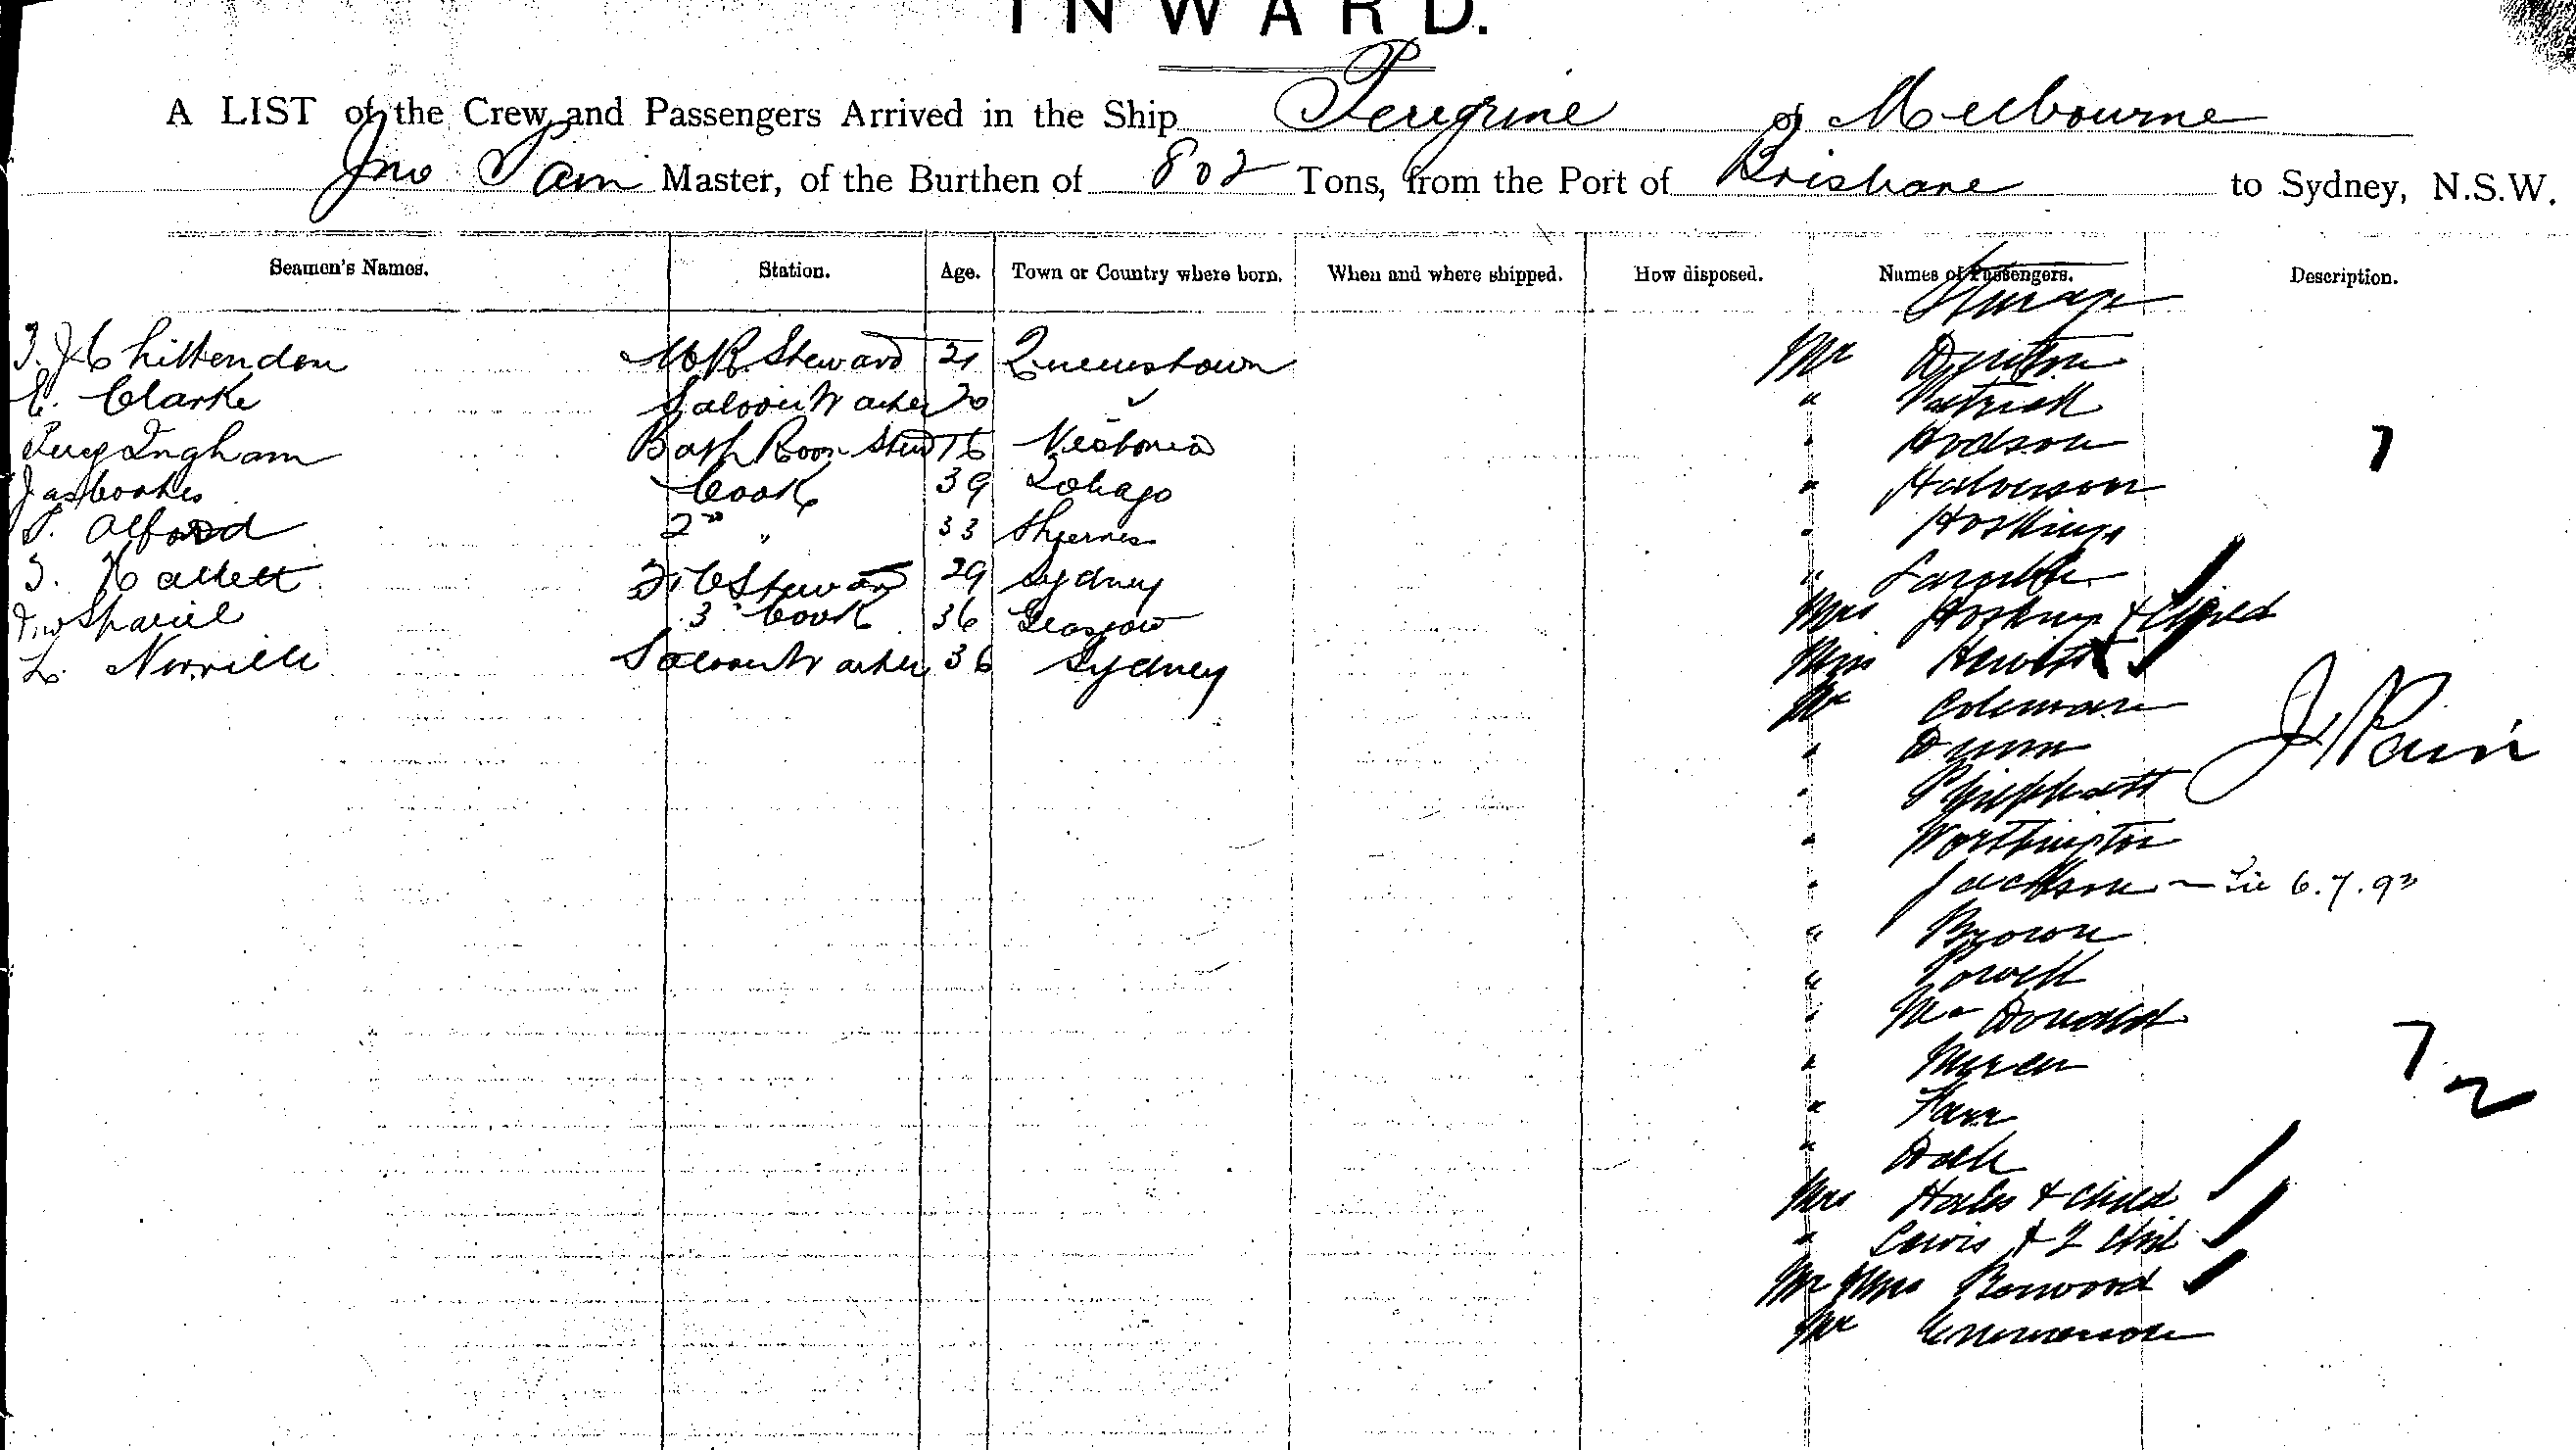 INWARD.
A LIST of the Crew and Passengers Arrived in the Ship Peregrine of Melbourne
Jno Pain Master, of the Burthen of 802 Tons, from the Port of Brisbane to Sydney, N.S.W.
Seamen's Names. Station. Age. Town or Country where born. When and where shipped. How disposed. Names of Passengers. Description.
Steerage
T. J. Chittenden M R Steward 21 Queenstown Mr
E. Clarke Saloon Washer 20 " Patrick
Percy Ingham Bath Room Stwd 16 Victoria " Hodson 7
Jas Cookes Cook 39 Tobago " Halverson
P. Alford 2nd " 33 Sheerness " Hoskings
T. Hallett F C Steward 29 Sydney "
3 Cook 36 Glasgow Mrs Hoskings & Child
L. Norville Saloon Washer 36 Sydney Hewitt
Mr Coleman
" Dunn J Pain
"
" Worthington
" Jackson - 6.7.93
" Brown
" Powell
" McDonald
" 7
" Farr 2
"
Mrs Hales & Child
" Lewis & 2 Chil
Mr & Mrs Benwood
Mr